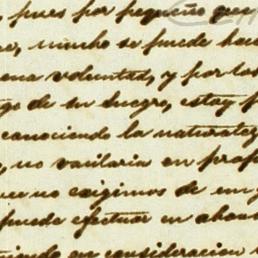 , pues por pequeño que
, mucho se puede hac
ena voluntad, y por los
go de su suegro, estoy p
conociendo la naturalez
, no vacilaria en prop
ue no exigimos de em
puede efectuar en abon
en consideracion